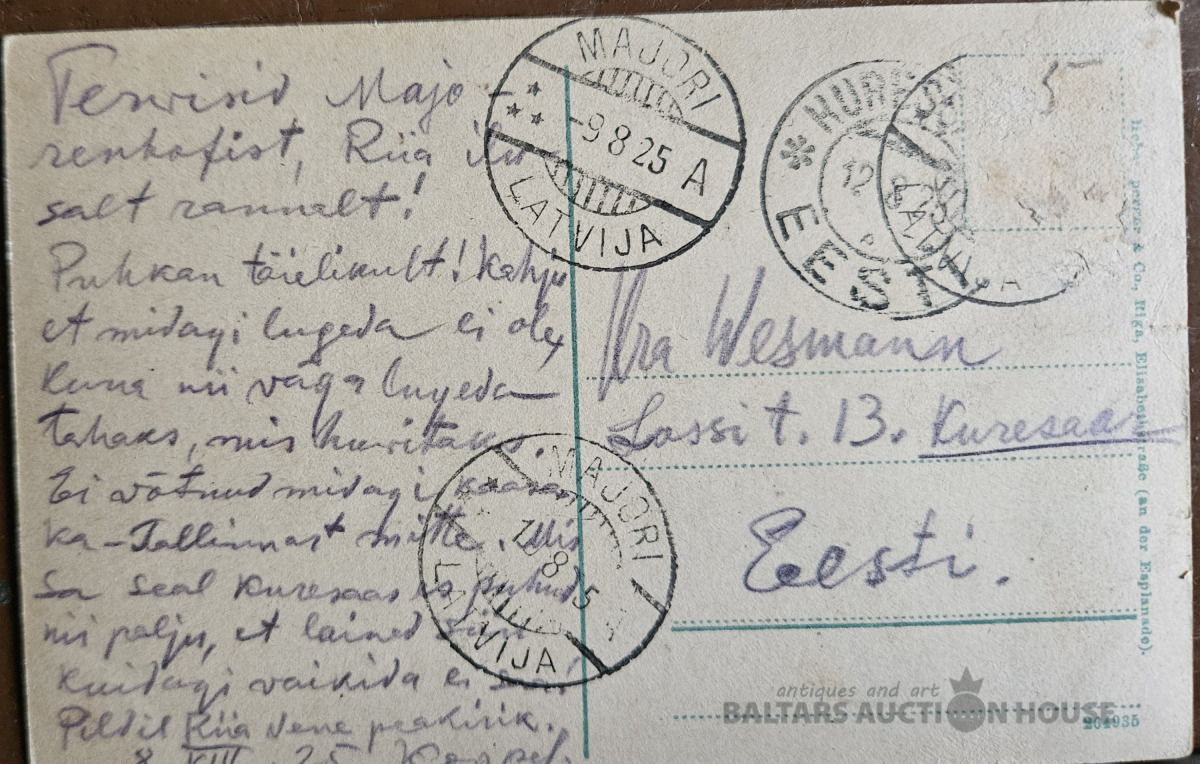 Terwisid Majo-
renhofist, Riia ilu-
salt rannalt!
Puhkan täielikult! Kahju
et midagi lugeda ei ole,
kuna nii väga lugeda
tahaks, mis huvitaks.
Ei võtnud midagi kaasa
ka Tallinnast mitte. Mis
Sa seal Kuresaares puhud
nii palju, et lained
kuidagi vaikida ei
Pildil Riia Vene peakirik.
8 VIII 25.
MAJORI
-9 8 25 A
LATVIJA
EESTI
12
LATVIJA
5
Wesmann
Lossi t. 13. Kuresaar
Eesti.
MAJORI
8
LATVIJA
& Co., Riga, Elisabethstraße (an der Esplanade).
antiques and art
BALTARS AUCTION HOUSE
264935